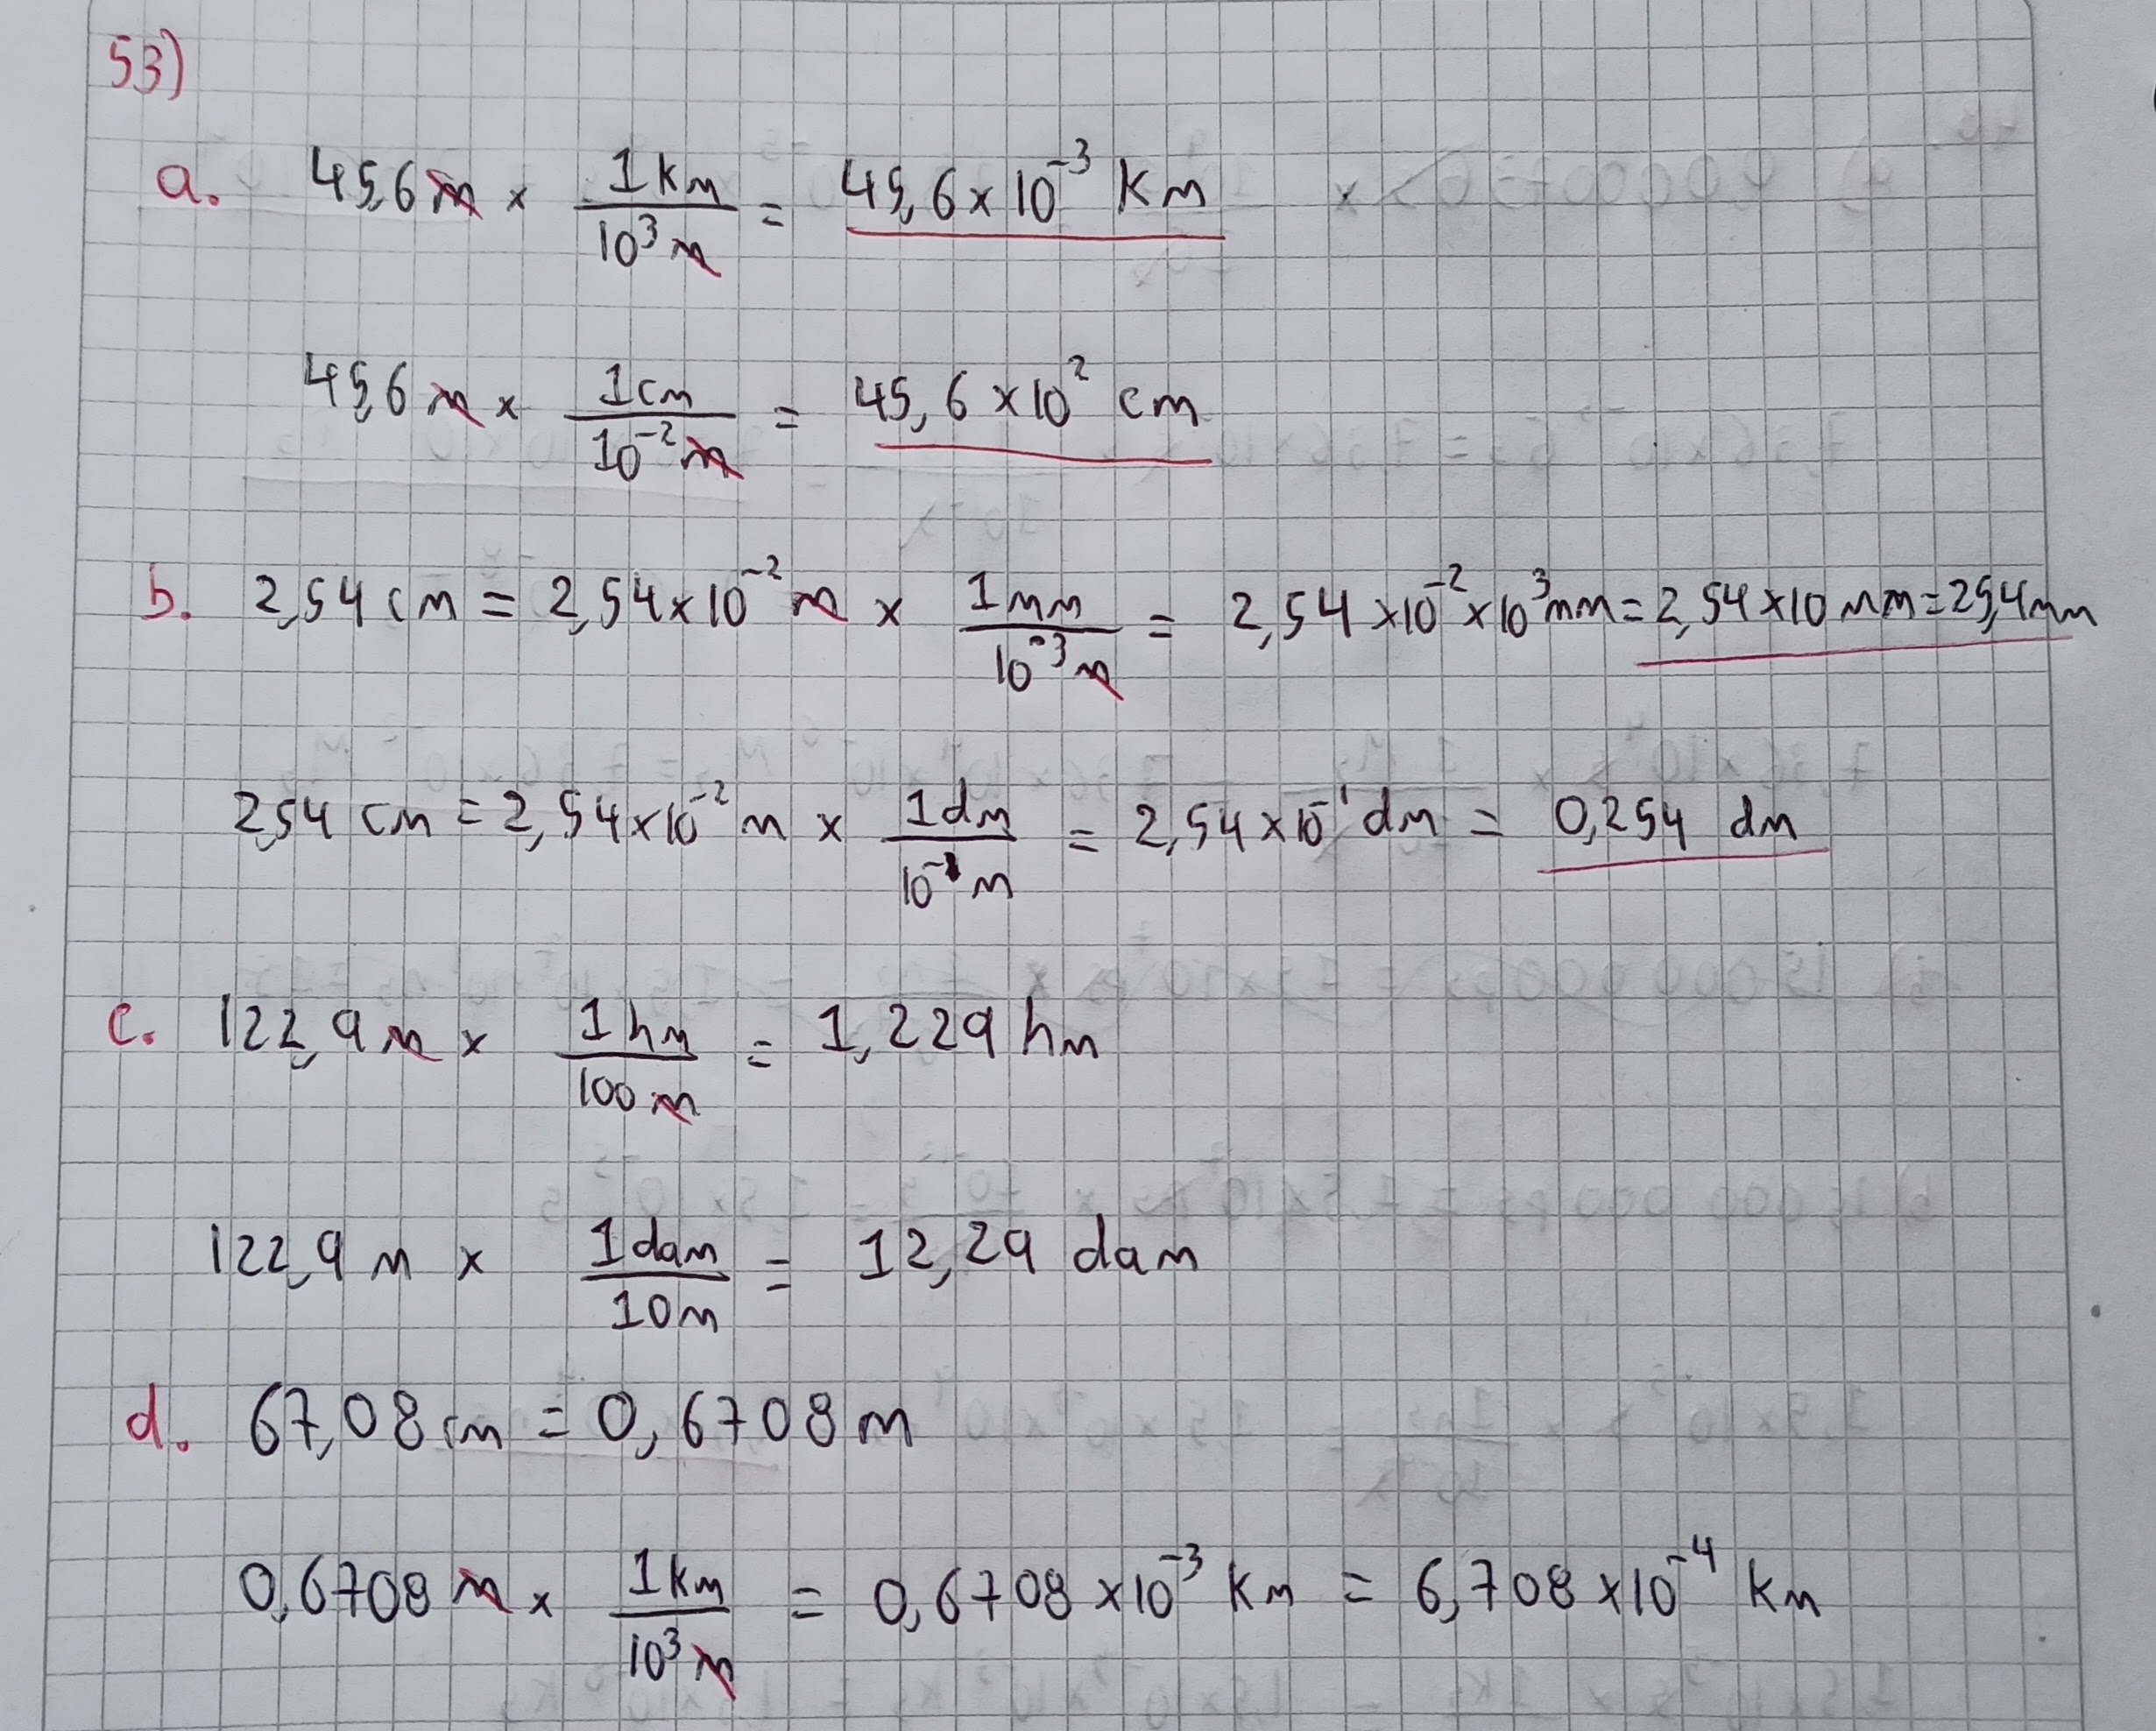 53)
a. 45,6 m × 1 km / 10³ m = 45,6 × 10⁻³ Km
45,6 m × 1 cm / 10⁻² m = 45,6 × 10² cm
b. 2,54 cm = 2,54 × 10⁻² m × 1 mm / 10⁻³ m = 2,54 × 10⁻² × 10³ mm = 2,54 × 10 mm = 25,4 mm
2,54 cm = 2,54 × 10⁻² m × 1 dm / 10⁻¹ m = 2,54 × 10⁻¹ dm = 0,254 dm
c. 122,9 m × 1 hm / 100 m = 1,229 hm
122,9 m × 1 dam / 10 m = 12,29 dam
d. 67,08 cm = 0,6708 m
0,6708 m × 1 km / 10³ m = 0,6708 × 10⁻³ Km = 6,708 × 10⁻⁴ Km